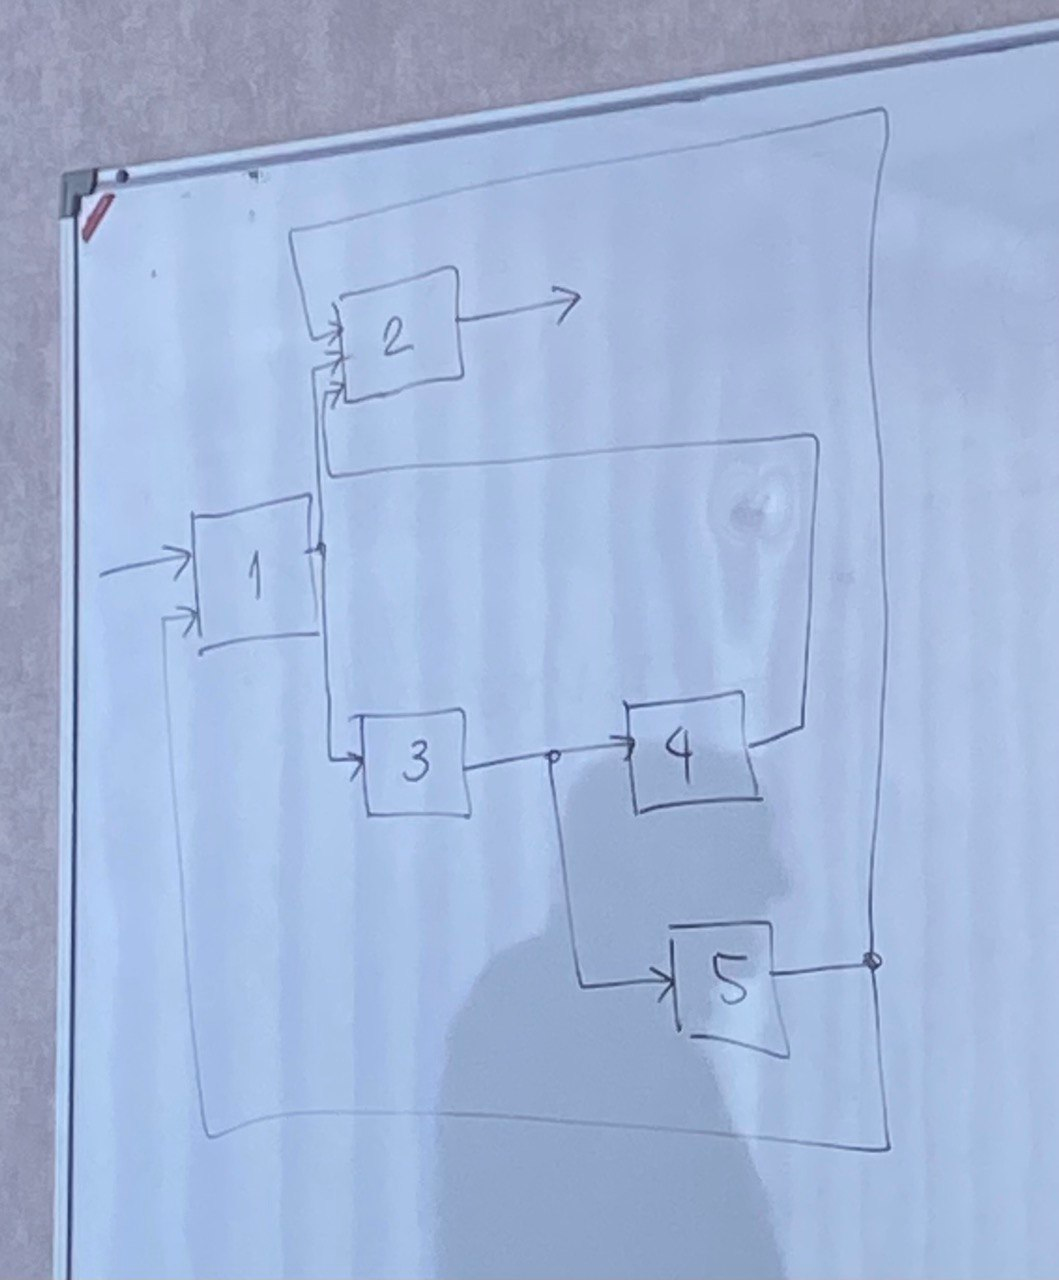 2
1
3
4
5